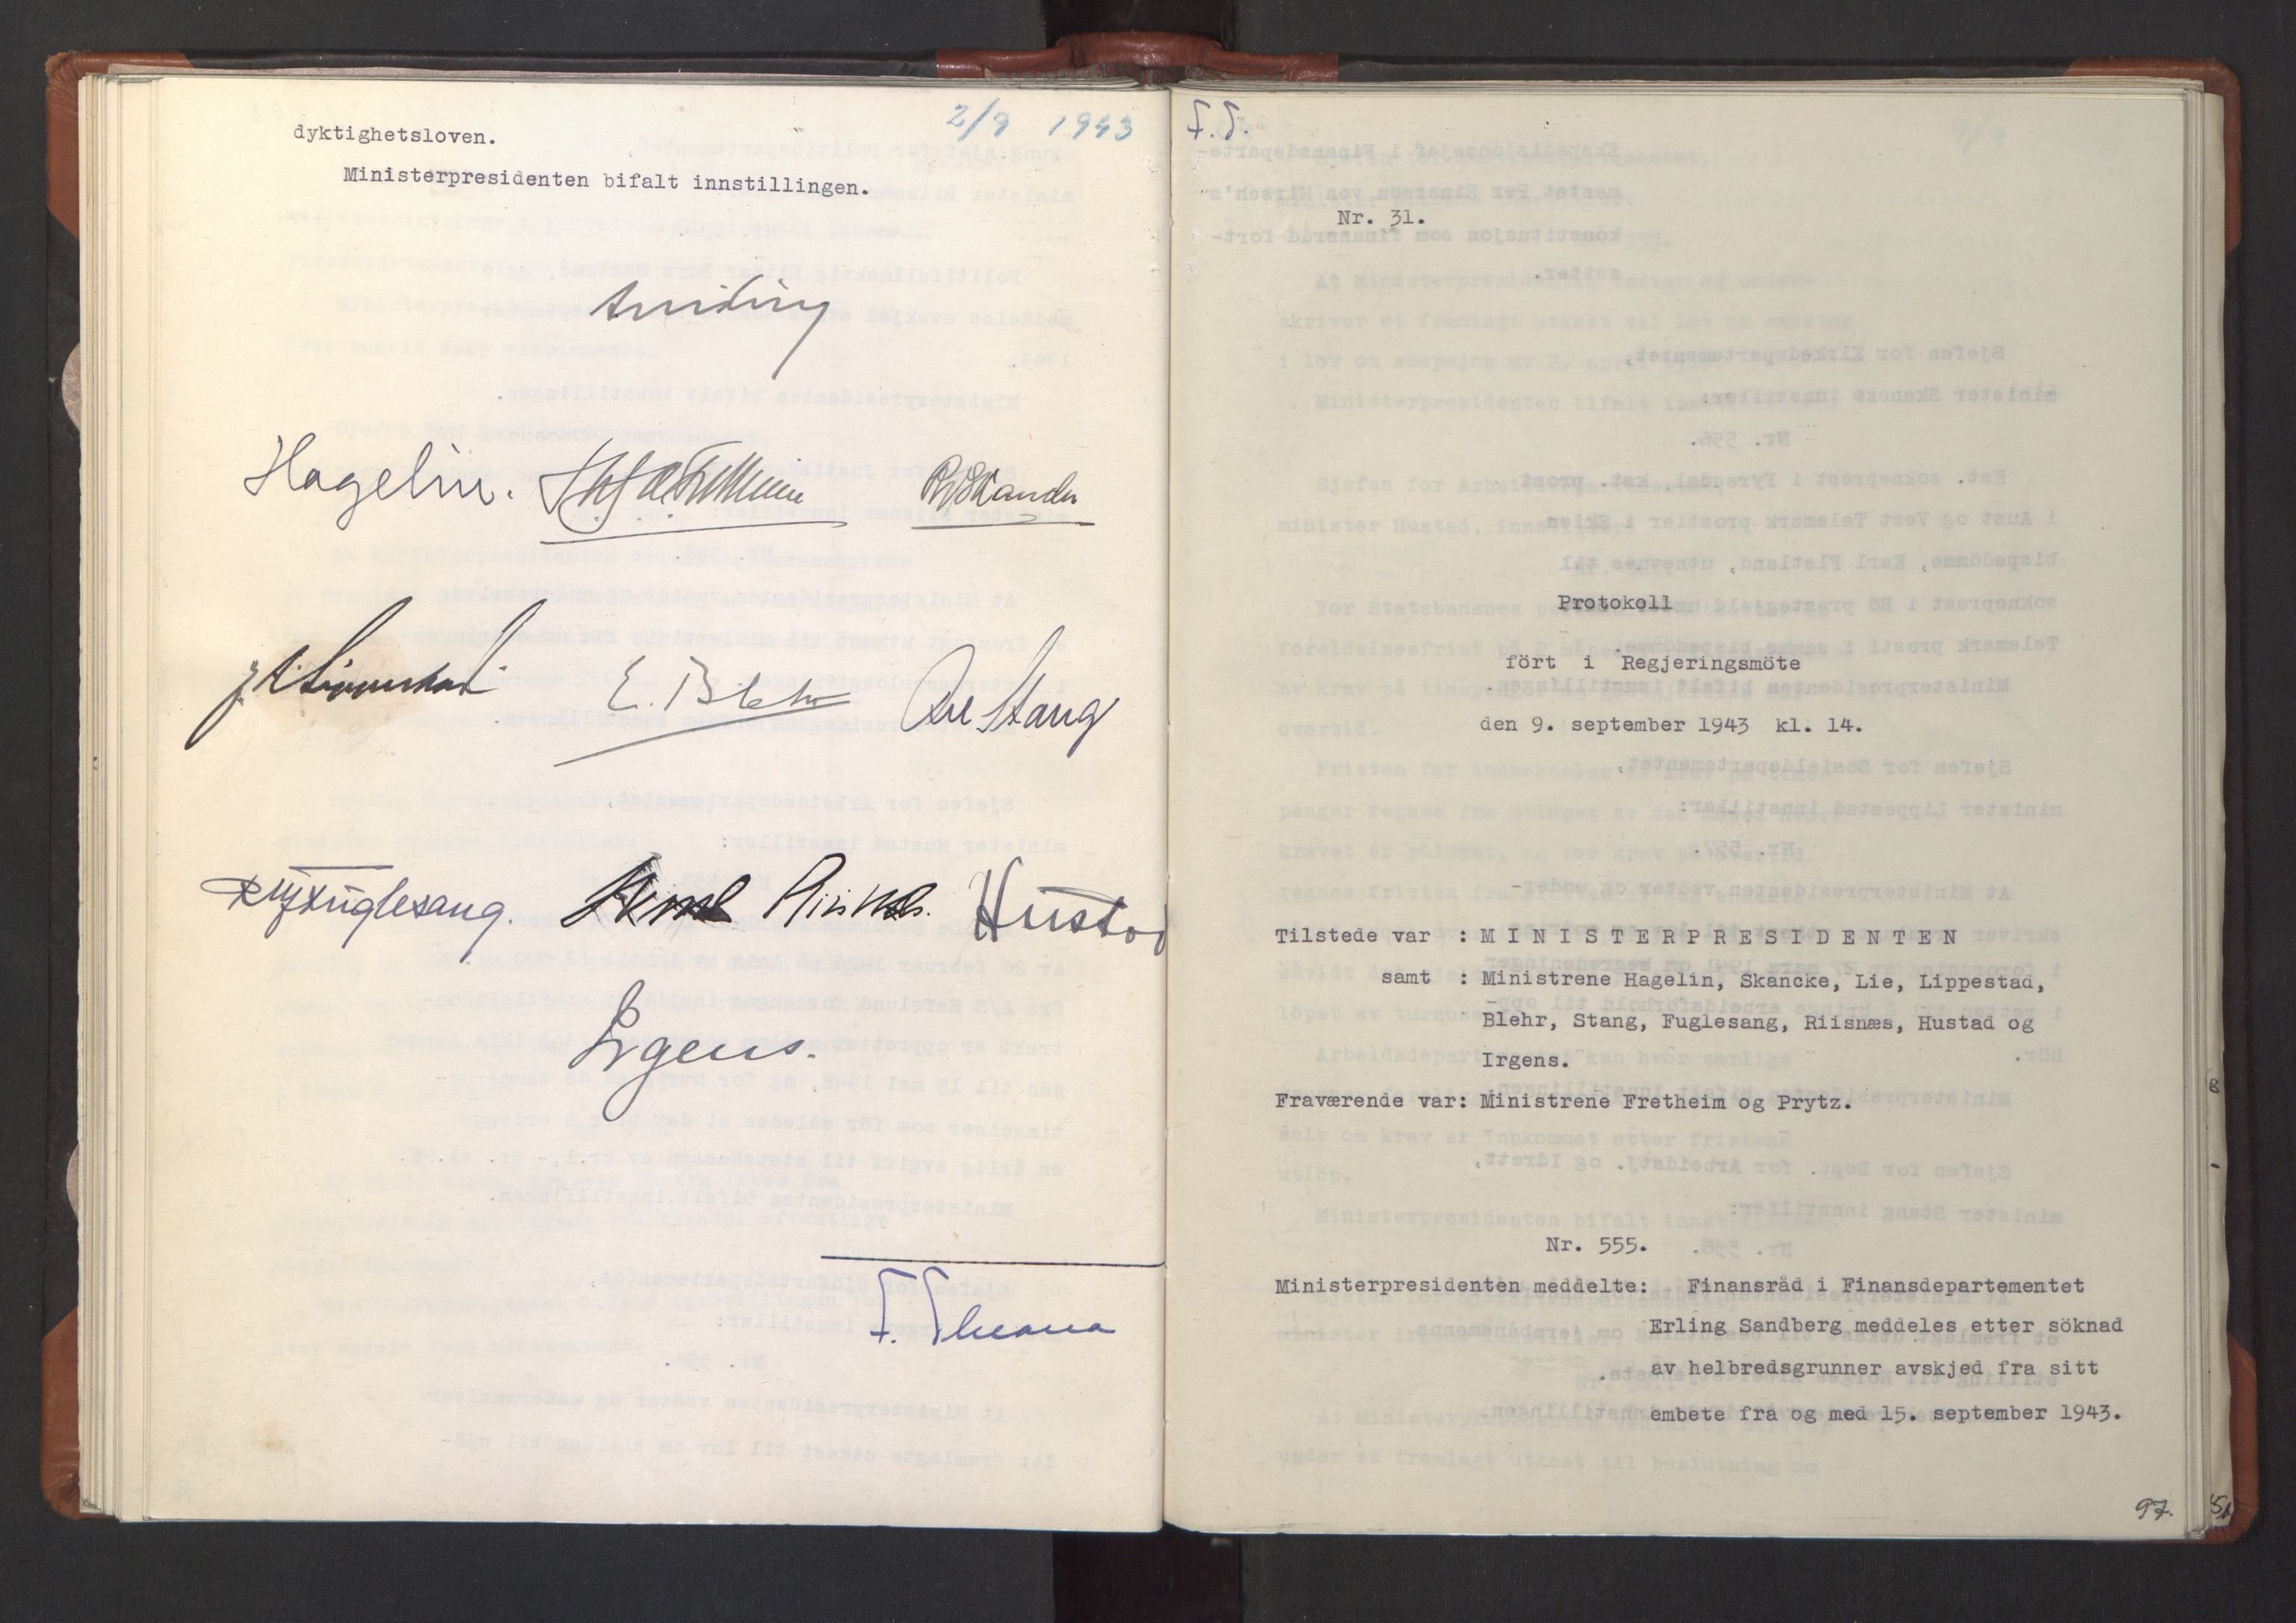 2/9 1943
dyktighetsloven.
Ministerpresidenten bifalt innstillingen.
Quisling
Hagelin.
R Skancke
E. Blehr
Axel Stang
RJFuglesang.
Riisnæs.
Hustad
Irgens.
F. T.
Nr. 31.
Protokoll
fört i Regjeringsmöte
den 9. september 1943 kl. 14.
Tilstede var : MINISTERPRESIDENTEN
samt : Ministrene Hagelin, Skancke, Lie, Lippestad,
Blehr, Stang, Fuglesang, Riisnæs, Hustad og
Irgens.
Fraværende var: Ministrene Fretheim og Prytz.
Nr. 555.
Ministerpresidenten meddelte: Finansråd i Finansdepartementet
Erling Sandberg meddeles etter söknad
av helbredsgrunner avskjed fra sitt
embete fra og med 15. september 1943.
97.